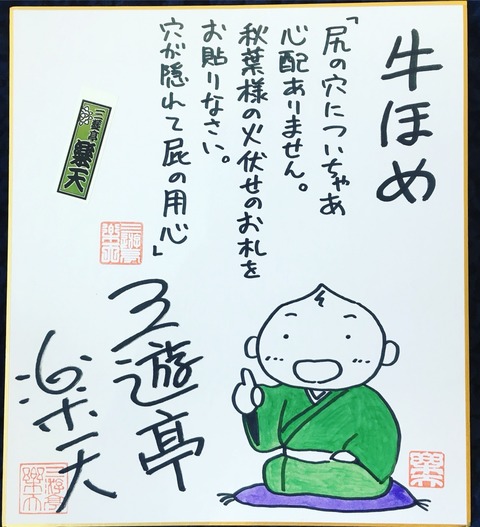 牛ほめ
「尻の穴についちゃあ
心配ありません。
秋葉様の火伏せのお札を
お貼りなさい。
穴が隠れて屁の用心」
三遊亭
樂天
三遊亭
楽天